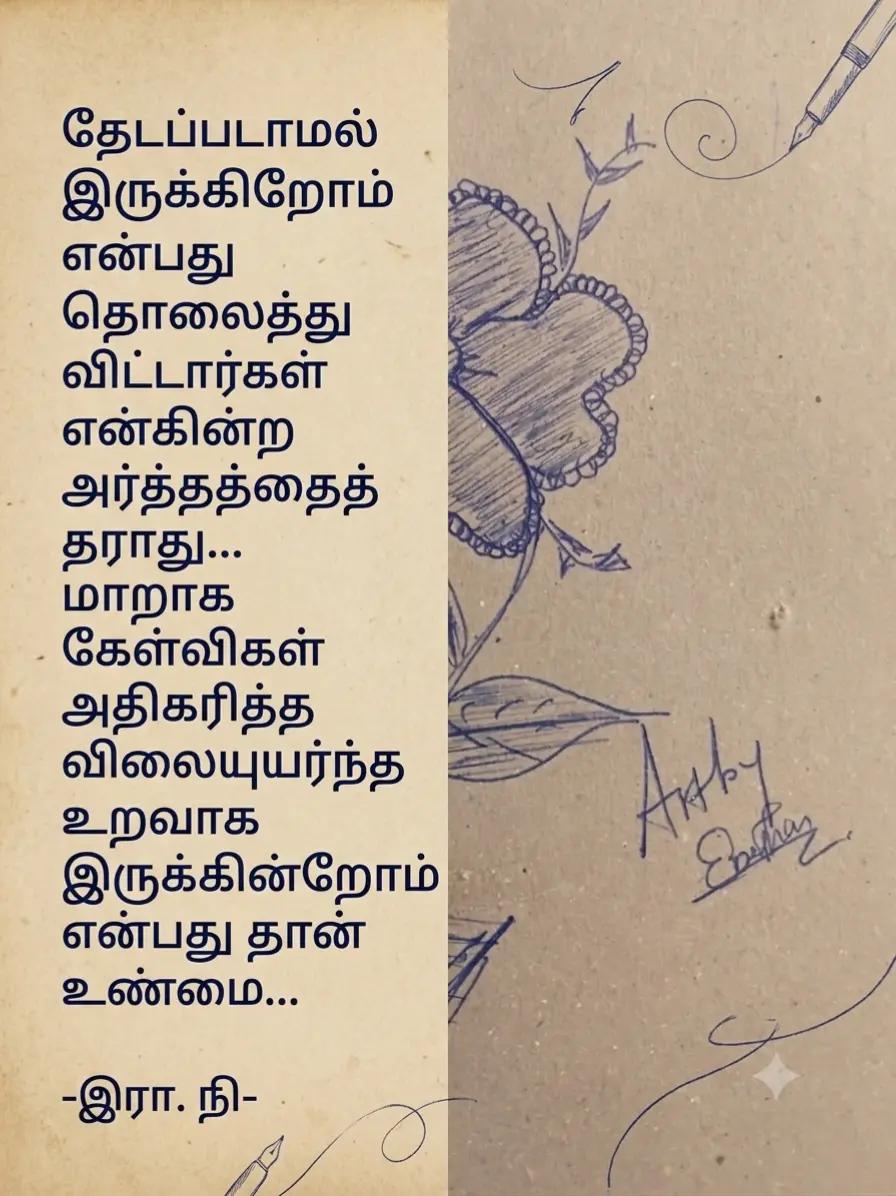 தேடப்படாமல்
இருக்கிறோம்
என்பது
தொலைத்து
விட்டார்கள்
என்கின்ற
அர்த்தத்தைத்
தராது...
மாறாக
கேள்விகள்
அதிகரித்த
விலையுயர்ந்த
உறவாக
இருக்கின்றோம்
என்பது தான்
உண்மை...
-இரா. நி-
Art by